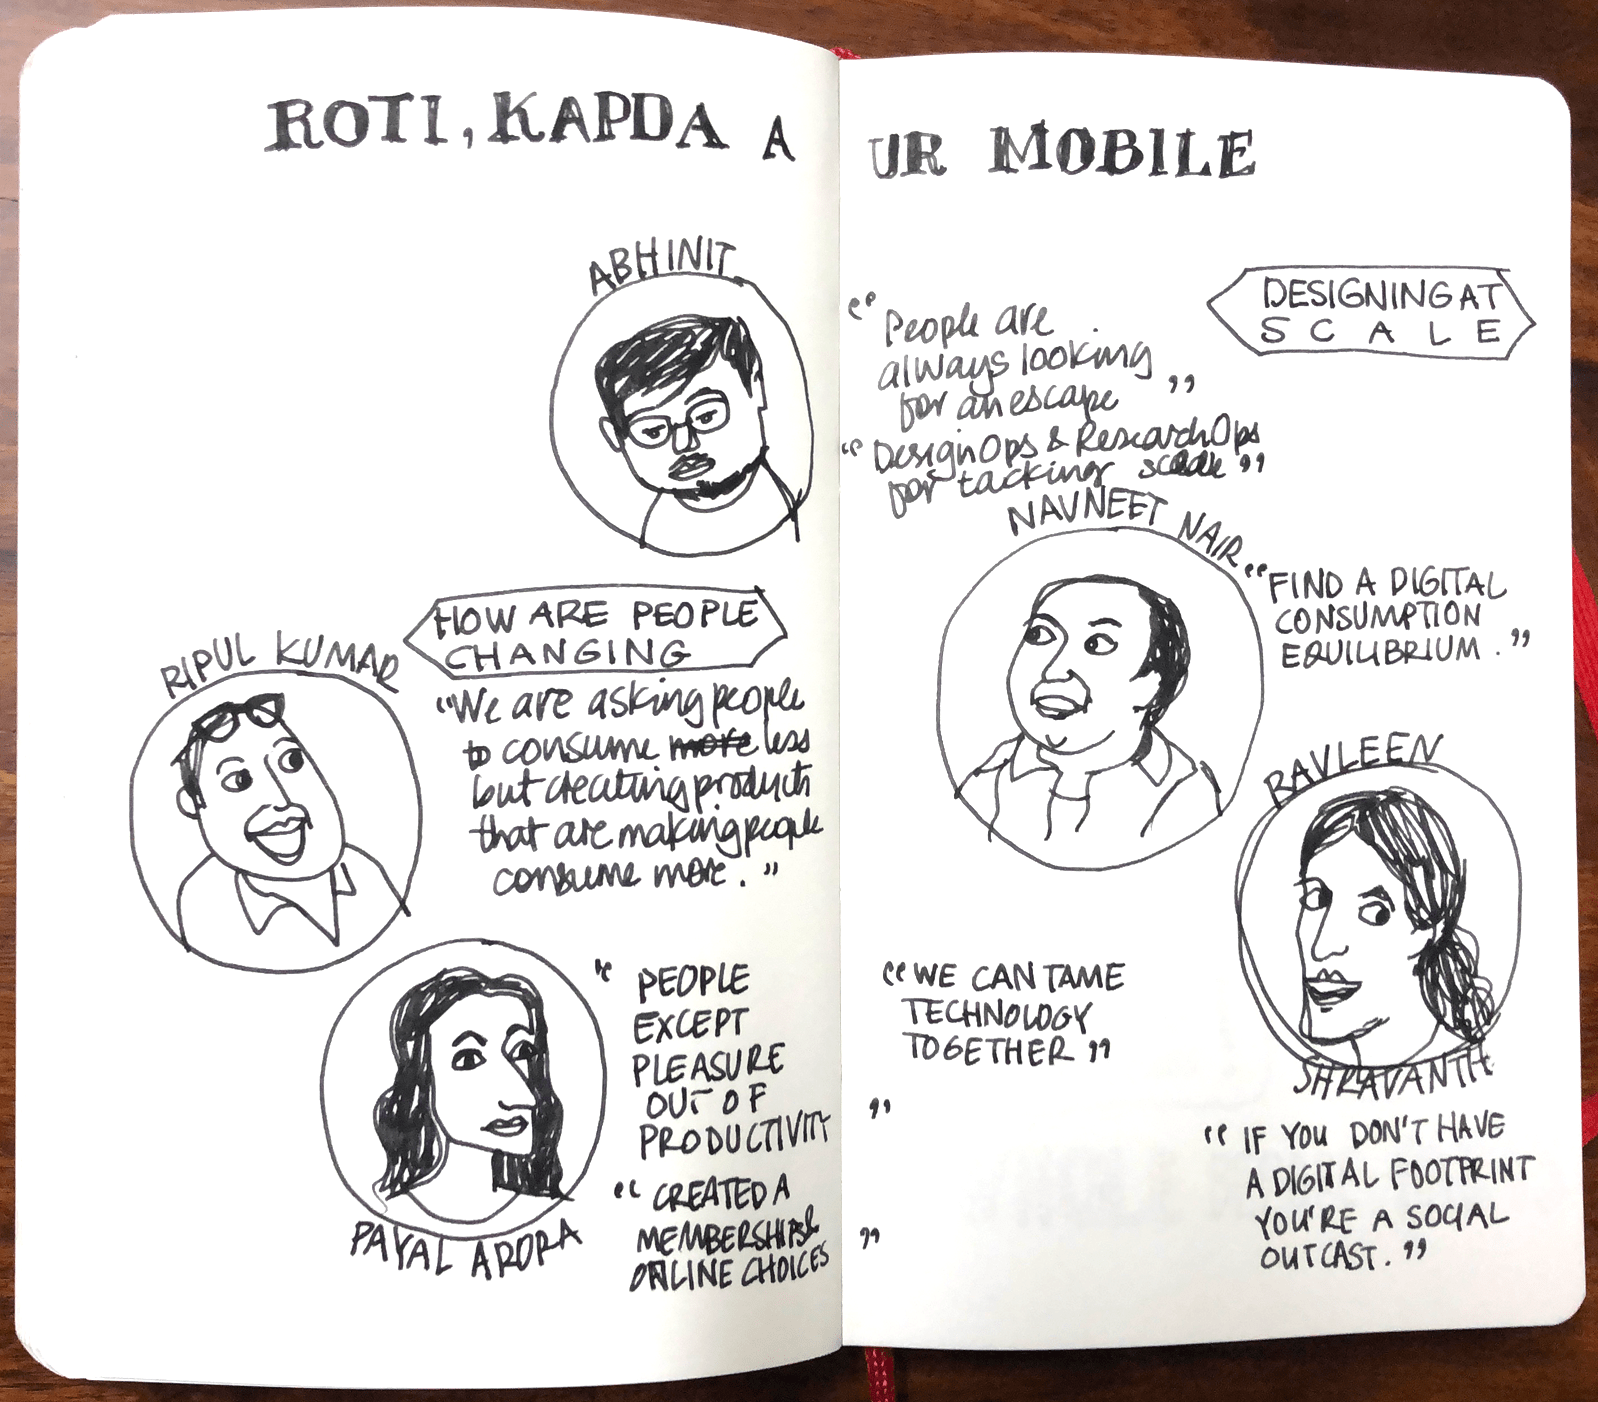 ROTI, KAPDA AUR MOBILE
ABHINIT
HOW ARE PEOPLE
CHANGING
RIPUL KUMAR
"We are asking people
to consume more less
but creating products
that are making people
consume more."
"PEOPLE
EXCEPT
PLEASURE
OUT OF
PRODUCTIVITY"
"CREATED A
MEMBERSHIPS &
ONLINE CHOICES"
PAYAL ARORA
DESIGNING AT
SCALE
"People are
always looking
for an escape"
"DesignOps & ResearchOps
for tacking scale"
NAVNEET NAIR
"FIND A DIGITAL
CONSUMPTION
EQUILIBRIUM."
RAVLEEN
"WE CAN TAME
TECHNOLOGY
TOGETHER"
SHRAVANTH
"IF YOU DON'T HAVE
A DIGITAL FOOTPRINT
YOU'RE A SOCIAL
OUTCAST."